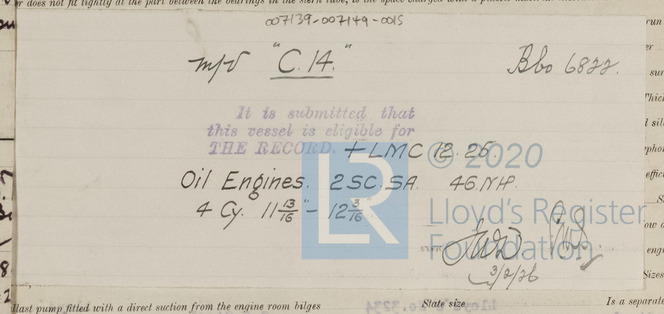 er does not fit tightly at the part between the bearings in the stern tube, is the space charged with a
007139-007149-0015
m/v "C.14."
Bbo 6822.
It is submitted that
this vessel is eligible for
THE RECORD. + LMC 12.25.
© 2020
Oil Engines. 2SC.SA. 46.NHP.
4 Cy. 11 13/16" - 12 3/16
Lloyd's Register
Foundation
3/2/26
llast pump fitted with a direct suction from the engine room bilges
State size
Is a separate